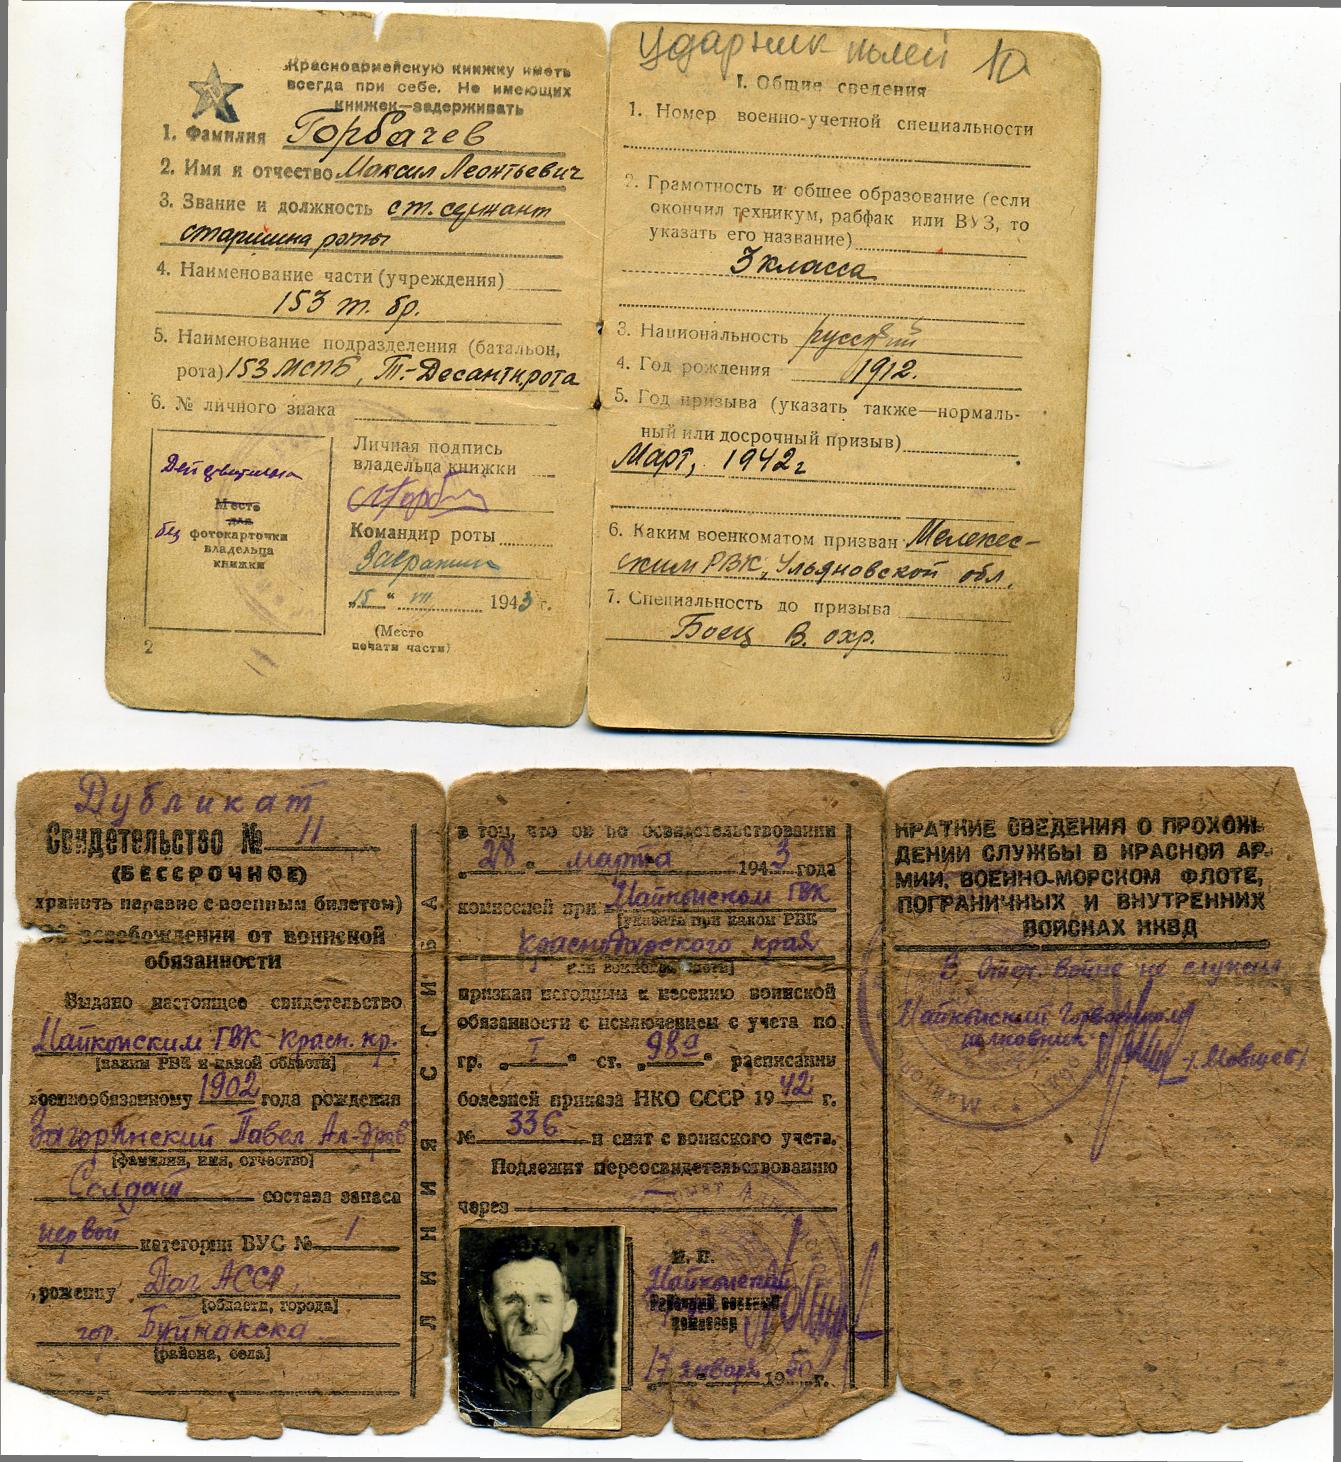 Красноармейскую книжку иметь
всегда при себе. Не имеющих
книжек—задерживать
1. Фамилия Горбачев
2. Имя и отчество Максим Леонтьевич
3. Звание и должность ст. сержант
старшина роты
4. Наименование части (учреждения)
153 т. бр.
5. Наименование подразделения (батальон,
рота) 153 МСПБ, Т.-Десантн. рота
6. № личного знака
Действительна
без
Место
для
фотокарточки
владельца
книжки
Личная подпись
владельца книжки
Командир роты
„15“ III 1943 г.
(Место
печати части)
2
Ударник полей 10
I. Общие сведения
1. Номер военно-учетной специальности
2. Грамотность и общее образование (если
окончил техникум, рабфак или ВУЗ, то
указать его название)
3 класса
3. Национальность русский
4. Год рождения 1912.
5. Год призыва (указать также—нормаль-
ный или досрочный призыв)
Март, 1942 г
6. Каким военкоматом призван Мелекес-
ским РВК, Ульяновской обл.
7. Специальность до призыва
Боец В. охр.
3
Дубликат
Свидетельство № 11
(БЕССРОЧНОЕ)
хранить наравне с военным билетом)
Об освобождении от воинской
обязанности
Выдано настоящее свидетельство
Майкопским ГВК Красн. кр.
[каким РВК и какой области]
военнообязанному 1902 года рождения
Загорянский Павел Ал-дров
[фамилия, имя, отчество]
Солдат состава запаса
первой категории ВУС № 1
урожденцу Даг АССР,
[области, города]
гор. Буйнакска
[района, села]
ЛИНИЯ СГИБА
в том, что он по освидетельствовании
„28“ марта 1943 года
комиссией при Майкопском ГВК
[указать при каком РВК
Краснодарского края
или военном
признан негодным к несению воинской
обязанности с исключением с учета по
гр. „I“ ст. „98а“ расписания
болезней приказа НКО СССР 1942 г.
№ 336 и снят с воинского учета.
Подлежит переосвидетельствованию
через
М. П.
Майкопский
Районный военный
комиссар
17 января 1950 г.
КРАТКИЕ СВЕДЕНИЯ О ПРОХОЖ-
ДЕНИИ СЛУЖБЫ В КРАСНОЙ АР-
МИИ, ВОЕННО-МОРСКОМ ФЛОТЕ,
ПОГРАНИЧНЫХ И ВНУТРЕННИХ
ВОЙСКАХ НКВД
В Отеч. войне не служил
Майкопский Горвоенком
полковник